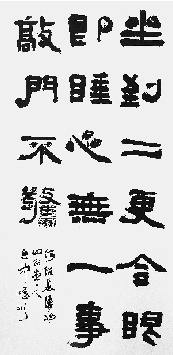 坐到二更合眼
即睡心無一事
敲門不驚